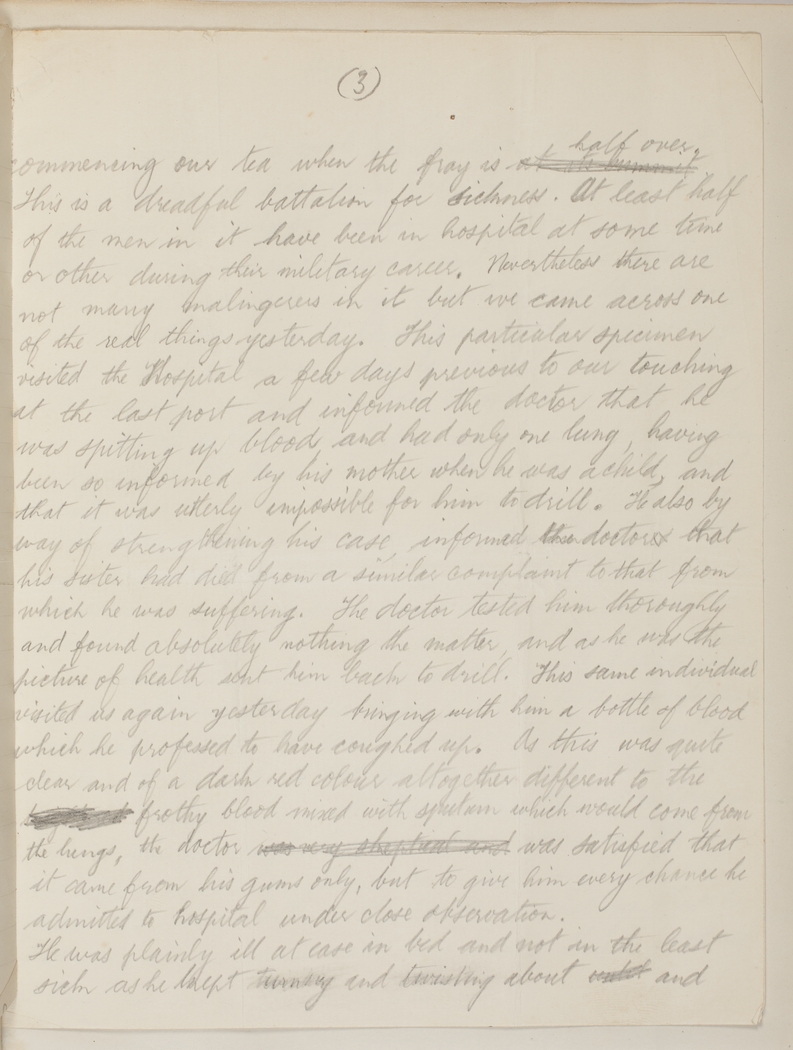 (3)
half over.
commencing our tea when the fray is at its summit
This is a dreadful battalion for sickness. At least half
of the men in it have been in hospital at some time
or other during their military career. Nevertheless there are
not many malingerers in it but we came across one
of the real things yesterday. This particular specimen
visited the Hospital a few days previous to our touching
at the last port and informed the doctor that he
was spitting up blood and had only one lung, having
been so informed by his mother when he was a child, and
that it was utterly impossible for him to drill. He also by
way of strengthening his case, informed the doctor that
his sister had died from a similar complaint to that from
which he was suffering. The doctor tested him thoroughly
and found absolutely nothing the matter, and as he was the
picture of health sent him back to drill. This same individual
visited us again yesterday bringing with him a bottle of blood
which he professed to have coughed up. As this was quite
clear and of a dark red colour altogether different to the
frothy blood mixed with sputum which would come from
the lungs, the doctor was very skeptical and was satisfied that
it came from his gums only, but to give him every chance he
admitted to hospital under close observation.
He was plainly ill at ease in bed and not in the least
sick as he kept turning and twisting about and